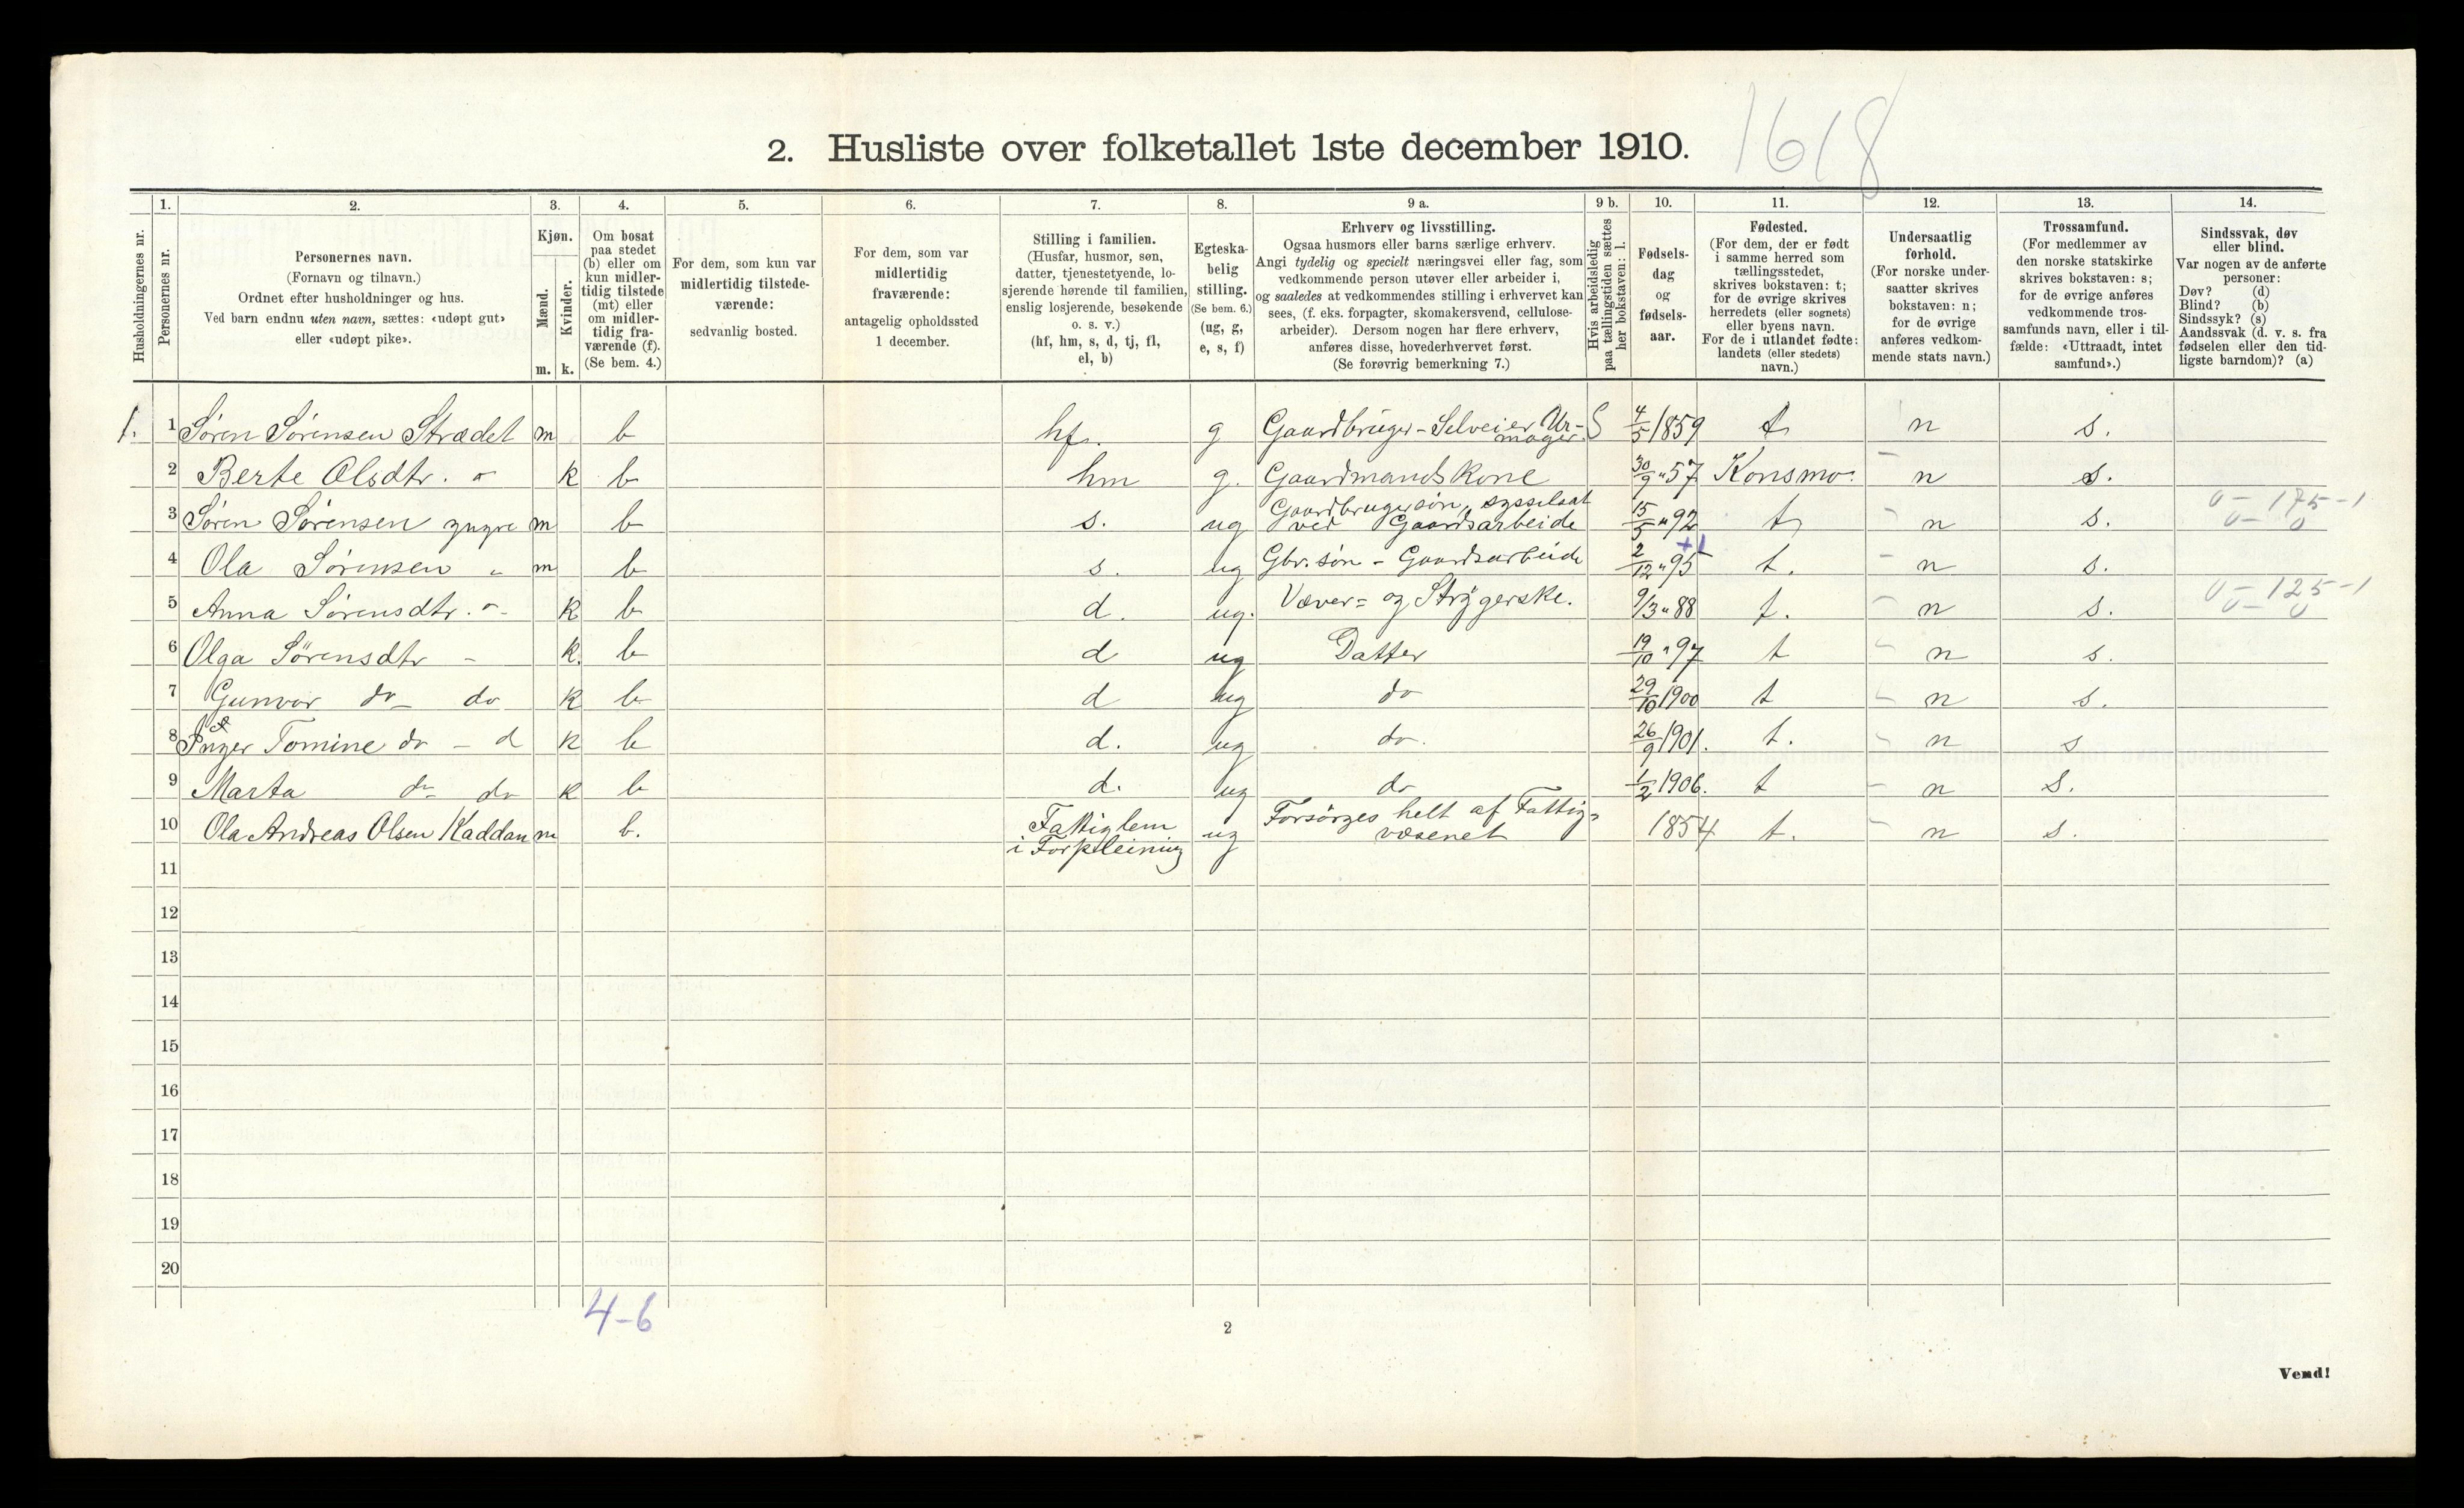 1618
2. Husliste over folketallet 1ste december 1910.
Husholdningernes nr.
1.
Personernes nr.
2.
Personernes navn.
(Fornavn og tilnavn.)
Ordnet efter husholdninger og hus.
Ved barn endnu uten navn, sættes: «udøpt gut»
eller «udøpt pike».
3.
Kjøn.
Mænd.
Kvinder.
m. k.
4.
Om bosat
paa stedet
(b) eller om
kun midler-
tidig tilstede
(mt) eller
om midler-
tidig fra-
værende (f).
(Se bem. 4.)
5.
For dem, som kun var
midlertidig tilstede-
værende:
sedvanlig bosted.
6.
For dem, som var
midlertidig
fraværende:
antagelig opholdssted
1 december.
7.
Stilling i familien.
(Husfar, husmor, søn,
datter, tjenestetyende, lo-
sjerende hørende til familien,
enslig losjerende, besøkende
o. s. v.)
(hf, hm, s, d, tj, fl,
el, b)
8.
Egteska-
belig
stilling.
(Se bem. 6.)
(ug, g,
e, s, f)
9 a.
Erhverv og livsstilling.
Ogsaa husmors eller barns særlige erhverv.
Angi tydelig og specielt næringsvei eller fag, som
vedkommende person utøver eller arbeider i,
og saaledes at vedkommendes stilling i erhvervet kan
sees, (f. eks. forpagter, skomakersvend, cellulose-
arbeider). Dersom nogen har flere erhverv,
anføres disse, hovederhvervet først.
(Se forøvrig bemerkning 7.)
9 b.
Hvis arbeidsledig
paa tællingstiden sættes
her bokstaven: l.
10.
Fødsels-
dag
og
fødsels-
aar.
11.
Fødested.
(For dem, der er født
i samme herred som
tællingsstedet,
skrives bokstaven: t;
for de øvrige skrives
herredets (eller sognets)
eller byens navn.
For de i utlandet fødte:
landets (eller stedets)
navn.)
12.
Undersaatlig
forhold.
(For norske under-
saatter skrives
bokstaven: n;
for de øvrige
anføres vedkom-
mende stats navn.)
13.
Trossamfund.
(For medlemmer av
den norske statskirke
skrives bokstaven: s;
for de øvrige anføres
vedkommende tros-
samfunds navn, eller i til-
fælde: «Uttraadt, intet
samfund».)
14.
Sindssvak, døv
eller blind.
Var nogen av de anførte
personer:
Døv? (d)
Blind? (b)
Sindssyk? (s)
Aandssvak (d. v. s. fra
fødselen eller den tid-
ligste barndom)? (a)
1. 1 Søren Sørensen Strædet m b hf. g Gaardbruger - Selveier Ur-mager. S 4/5 1859 t n s.
2 Berte Olsdtr. " k b hm g. Gaardmandskone 30/9 " 57 Konsmo. n s.
3 Søren Sørensen yngre m b s. ug Gaardbrugersøn, sysselsat ved Gaardsarbeide 15/5 " 92 t n s. 0 - 175 - 1 0 - 0
4 Ola Sørensen " m b s. ug Gbr. søn - Gaardsarbeide 2/12 " 95 +1 t. n s.
5 Anna Sørensdtr. " k b d. ug. Væver= og Strygerske. 9/3 " 88 t. n s. 0 - 125 - 1 0 - 0
6 Olga Sørensdtr - k. b d ug Datter 19/10 " 97 t n s.
7 Gunvor do do k b d ug do 29/10 1900 t n s.
8 Inger Tomine do - d k b d. ug do. 26/9 1901. t. n s
9 Marta do do k b d. ug do 1/2 1906. t n s.
10 Ola Andreas Olsen Kaddan m b. Fattiglem i Forpleining ug Forsörges helt af Fattig= væsenet 1854 t. n s.
11
12
13
14
15
16
17
18
19
20
4-6
2
Vend!